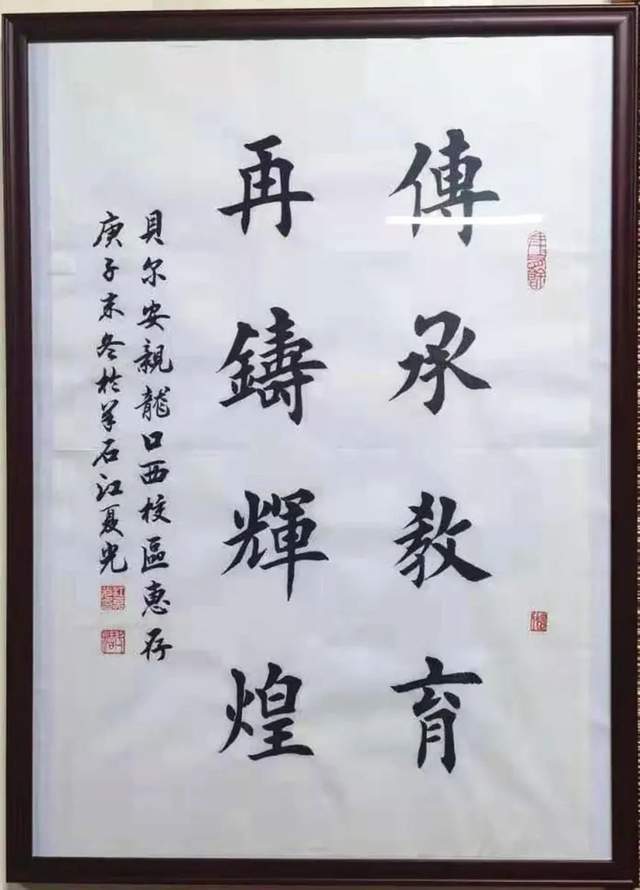 傳承教育
再鑄輝煌
貝尔安親龍口西校區惠存
庚子末冬於羊石江夏光